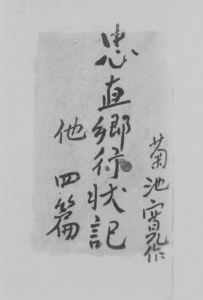 菊池寛作
忠直卿行状記
他四篇